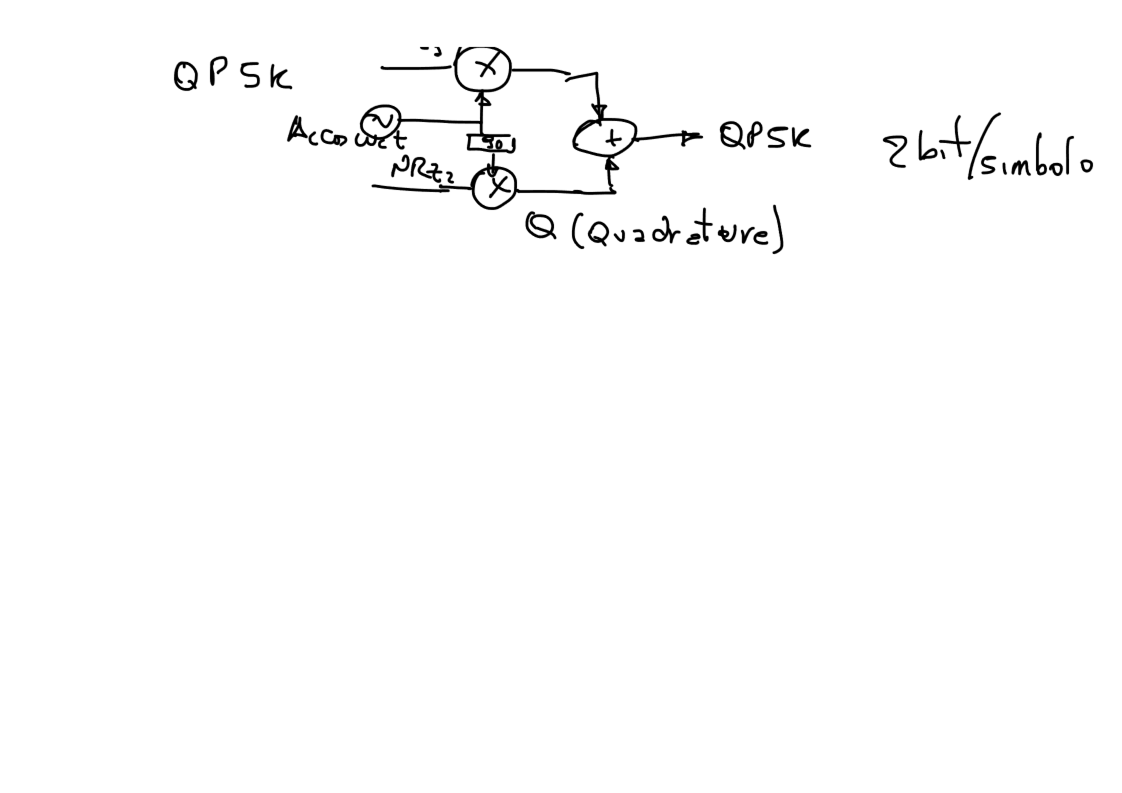 QPSK
Accos wct
90
NRZ2
QPSK
2bit/simbolo
Q (Quadrature)